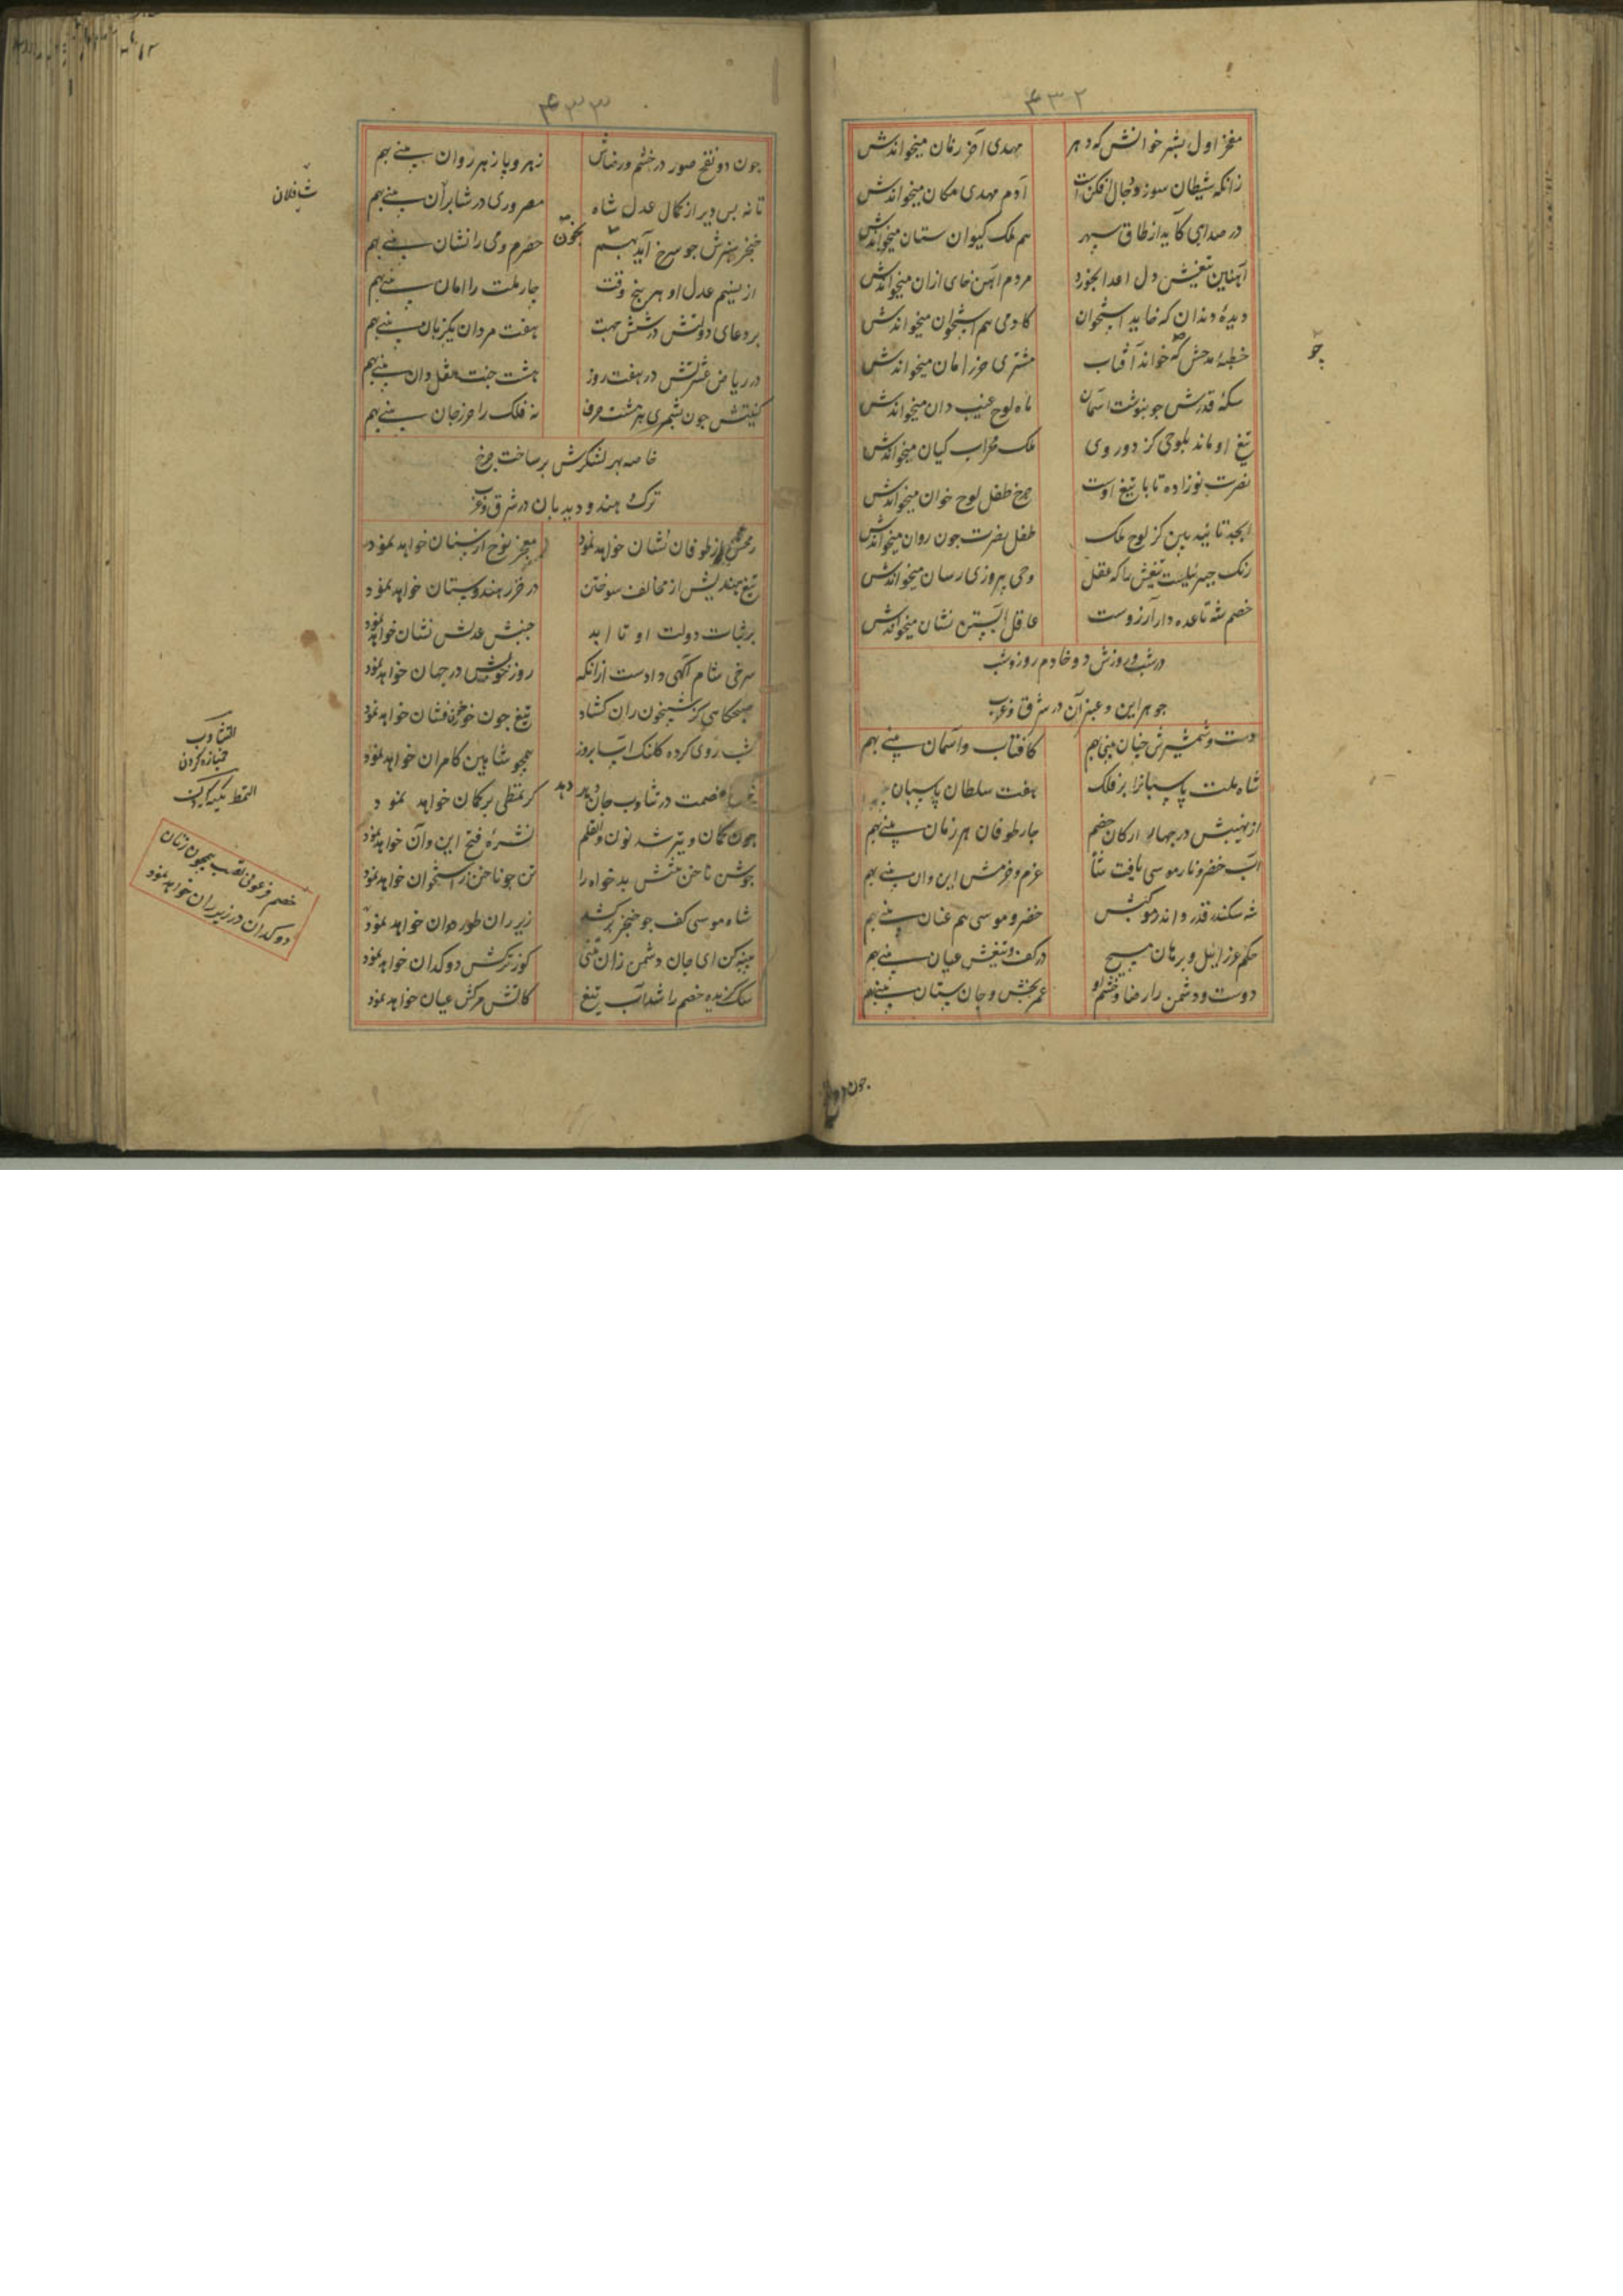 ۴۳۲
مفخر اول بشر خوانش که دهر مهدی آخر زمان میخواندش
زانکه شیطان سوز و دجال افکن است آدم مهدی مکان میخواندش
در صداهی کاید از طاق سپهر هم ملک کیوان ستان میخواندش
آهنین تیغش دل اعدا بخورد مردم آهن خای ازان میخواندش
دیدهٔ دندان که خاید استخوان کادمی هم استخوان میخواندش
خطبهٔ مدحش که خواند آفتاب مشتری حرز امان میخواندش
سکهٔ قدرش جو بنوشت آسمان ماه لوح غیب دان میخواندش
تیغ او ماند بلوحی کز دو روی ملک محراب کیان میخواندش
نصرت نوزاده تا با تیغ اوست چرخ طفل لوح خوان میخواندش
ابجد تایید بین کز لوح ملک طفل نصرت جون روان میخواندش
رنک جبرئیلست تیغش را که عقل وحی پیروزی رسان میخواندش
خصم شه تا عده دار آرزوست عاقل آبستن نشان میخواندش
در شب و روزش دو خادم روز و شب
جوهر این و عنبر آن در شرق و غرب
دست و شمشیرش جنان بینی بهم کافتاب و آسمان بینی بهم
شاه ملت پاسبانرا بر فلک هفت سلطان پاسبان
از نهیبش در جهار ارکان خصم جار طوفان هر زمان بینی بهم
آب خضر و نار موسی یافت شاه عزم و حزمش این و ان بینی بهم
شه سکندر قدر و اندر موکبش خضر و موسی هم عنان بینی بهم
حکم عزرائیل و برهان مسیح در کف و تیغش عیان بینی بهم
دوست و دشمن را رضا و خشم او عمر بخش و جان ستان بینی بهم
جون دو
جو
۴۳۳
جون دو نفخ صور در خشم و رضاش زهر و پازهر روان بینی بهم
تا نه بس دیر از کمال عدل شاه مصر و ری در شابران بینی بهم
خنجر سبزش جو سرخ آید بخون حصرم و می را نشان بینی بهم
از نسیم عدل او هر پنج وقت جار ملت را امان بینی بهم
بر دعای دولتش در شش جهت هفت مردان یکزبان بینی بهم
در ریاض عشرتش در هفت روز هشت جنت نقل دان بینی بهم
کنیتش جون بشمری هر هشت حرف نه فلک را حرز جان بینی بهم
خاصه بهر لشکرش بر ساخت چرخ
ترک و هندو دیدبان در شرق و غرب
رمحش از طوفان نشان خواهد نمود معجز نوح از سنان خواهد نمود
تیغ هندیش از مخالف سوختن در خزر هندوستان خواهد نمود
بر ثبات دولت او تا ابد جنبش عدلش نشان خواهد نمود
سرخی شام آگهی دادست ازانکه روز خوش در جهان خواهد نمود
صبحگاهی کز شبیخون ران کشاد تیغ جون خور خونفشان خواهد نمود
شب روی کرده کلنک آسا بروز همچو شاهین کامران خواهد نمود
خصمت در تثاوب جان دهد کر تمطی بر کمان خواهد نمود
جون کمان و تیر شد نون و القلم نشرهٔ فتح این و آن خواهد نمود
جوشن ناخن تنش بدخواه را تن جو ناخن ز استخوان خواهد نمود
شاه موسی کف جو خنجر بر کشد زیر ران طور دوان خواهد نمود
پنبه کن ای جان دشمن زان تنی کوز ترکش دوکدان خواهد نمود
سک کزیده خصم را شد آب تیغ کاتش مرکش عیان خواهد نمود
شافلان
التثاوب
خمیازه کردن
خصم فرعونی نسب همچون زنان
دوکدان در زیر ران خواهد نمود